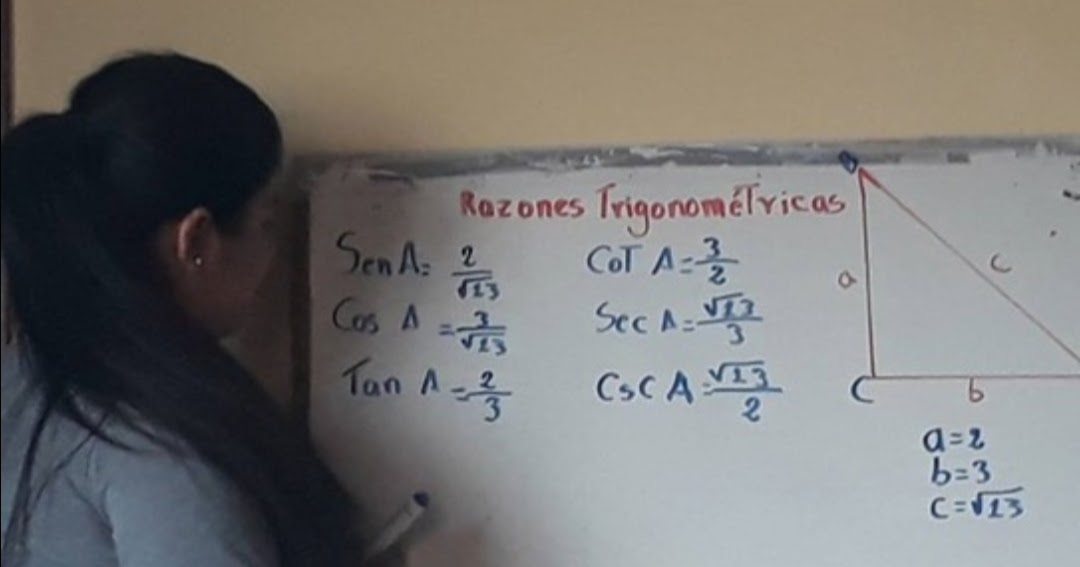 Razones Trigonométricas
Sen A = 2/√13
Cos A = 3/√13
Tan A = 2/3
Cot A = 3/2
Sec A = √13/3
Csc A = √13/2
B
a
c
C
b
a=2
b=3
c=√13